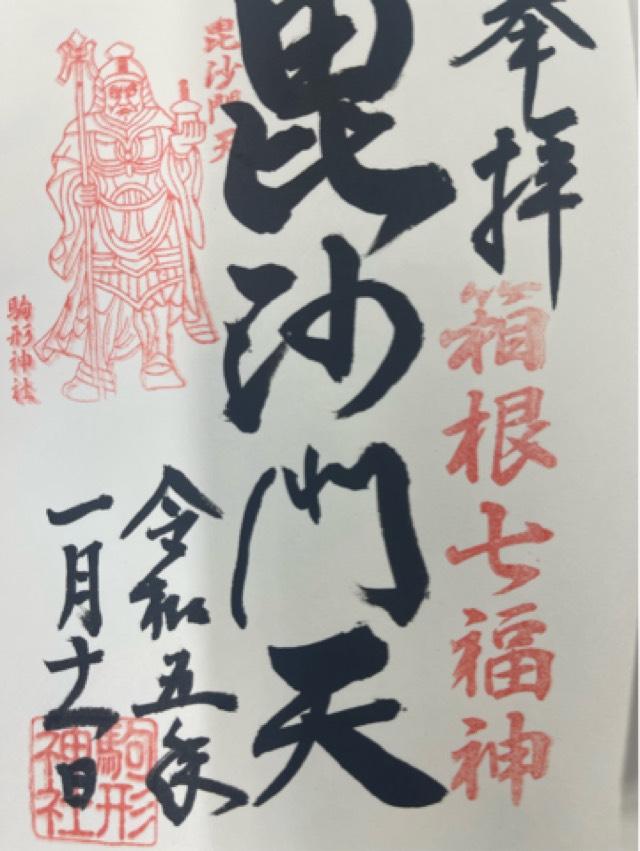 奉拝
箱根七福神
毘沙門天
毘沙門天
令和五年
一月十一日
駒形神社
駒形神社